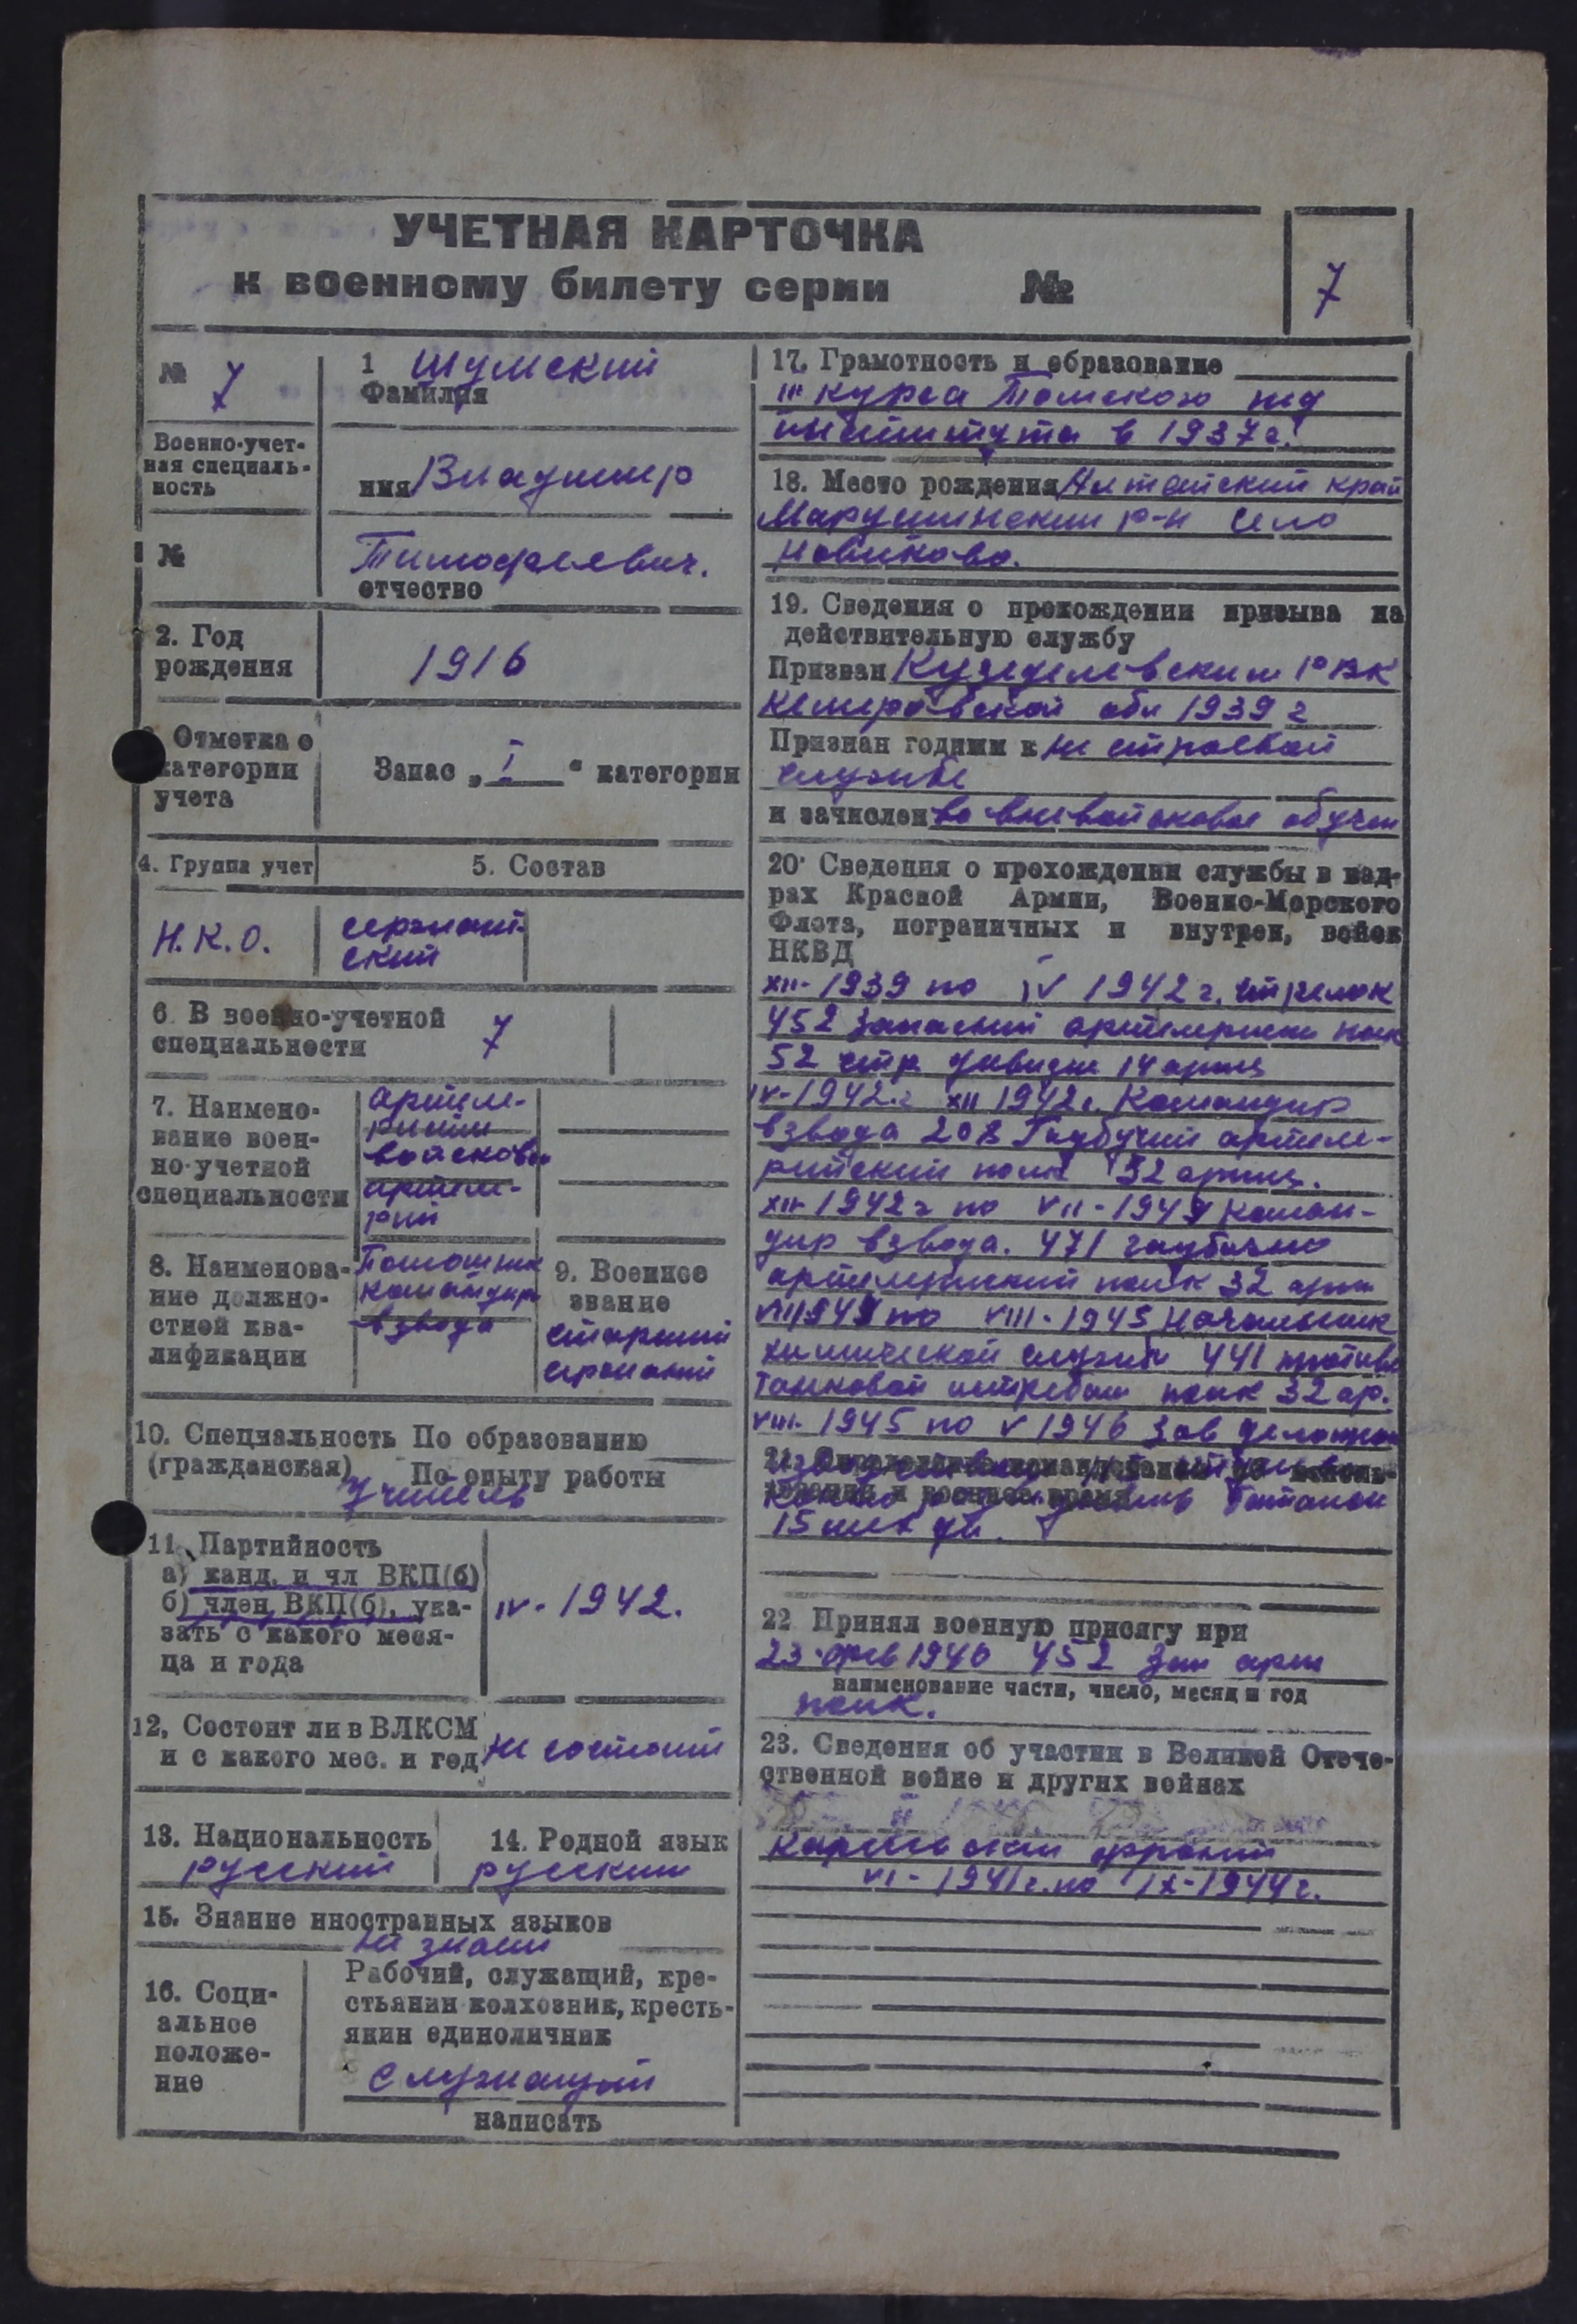 УЧЕТНАЯ КАРТОЧКА
к военному билету серии №
7
№ 7
1 Шумский
Фамилия
Военно-учет-
ная специаль-
ность
имя Владимир
№
Тимофеевич.
отчество
2. Год
рождения
1916
Отметка о
категории
учета
Запас „I“ категории
4. Группа учет
5. Состав
Н.К.О.
сержант-
ский
6. В военно-учетной
специальности
7
7. Наимено-
вание воен-
но-учетной
специальности
артиле-
рийский
войсковой
артиле-
рии
8. Наименова-
ние должно-
стной ква-
лификации
Помошник
командира
взвода
9. Военное
звание
старший
сержант
10. Специальность По образованию
(гражданская) По опыту работы
Учитель
11. Партийность
а) канд. и чл ВКП(б)
б) член ВКП(б), ука-
зать с какого меся-
ца и года
IV - 1942.
12, Состоит ли в ВЛКСМ
и с какого мес. и год
не состоит
13. Национальность
русский
14. Родной язык
русский
15. Знание иностранных языков
не знает
16. Соци-
альное
положе-
ние
Рабочий, служащий, кре-
стьянин колхозник, кресть-
янин единоличник
Служащий
написать
17. Грамотность и образование
III курса Томского пед
института в 1937г.
18. Место рождения Алтайский край
Марушинский р-н село
Новиково.
19. Сведения о прохождении призыва на
действительную службу
Призван Кузеделевским РВК
Кемеровской обл 1939 г
Признан годным к не строевой
службе
и зачислен во вневойсковое обучен
20. Сведения о прохождении службы в кад-
рах Красной Армии, Военно-Морского
Флота, пограничных и внутрен, войск
НКВД
XII-1939 по IV 1942 г. стрелок
452 запасный артилерийск полк
52 стр дивизии 14 армия
IV-1942 г XII 1942 г. Командир
взвода 208 Гаубучий артиле-
рийский полк 32 армия.
XII 1942 г по VII-1944 коман-
дир взвода. 471 гаубично
артилерийский полк 32 арм
VII 1944 по VIII-1945 Начальник
химической службы 441 противо
танковой истребит полк 32 ар.
VIII-1945 по V 1946 Зав делопрои
батальон
15
22 Принял военную присягу при
23 фев 1940 452 Зап арт
наименование части, число, месяц и год
полк.
23. Сведения об участии в Великой Отече-
ственной войне и других войнах
Карельский фронт
VI - 1941 г. по IX-1944 г.